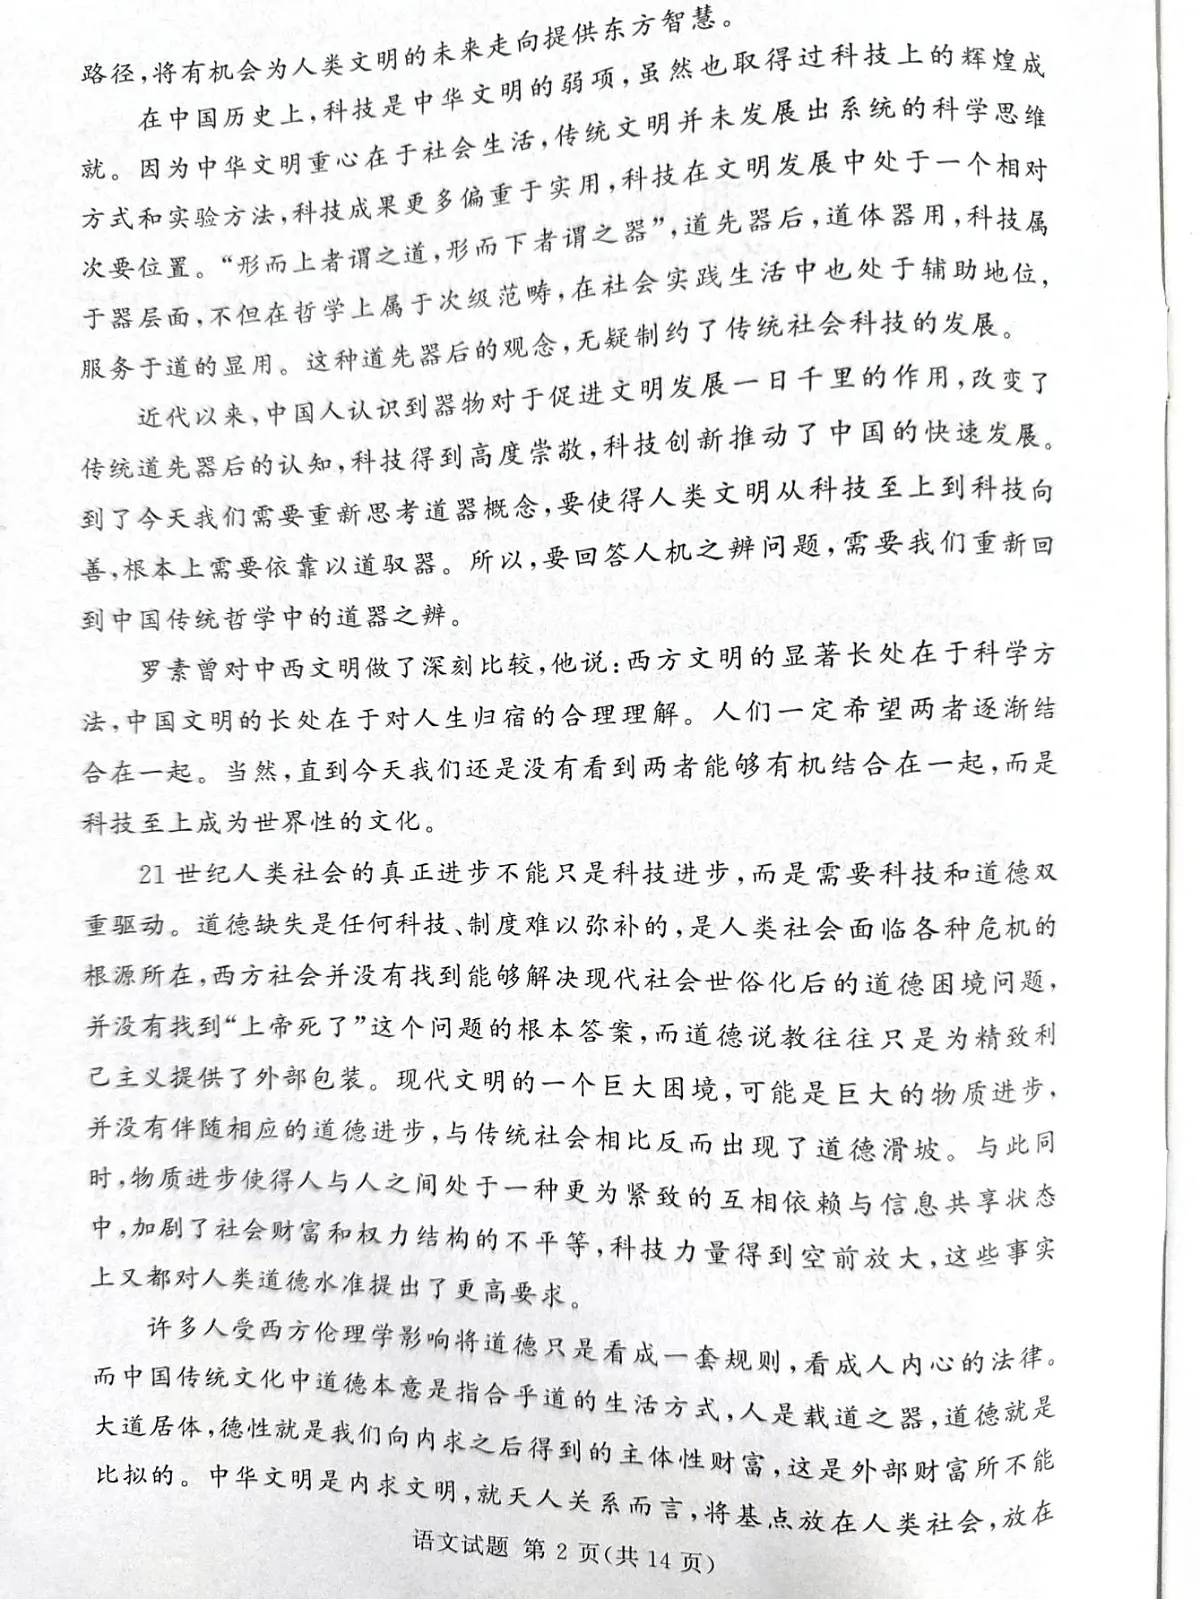 路径,将有机会为人类文明的未来走向提供东方智慧。
在中国历史上,科技是中华文明的弱项,虽然也取得过科技上的辉煌成
就。因为中华文明重心在于社会生活,传统文明并未发展出系统的科学思维
方式和实验方法,科技成果更多偏重于实用,科技在文明发展中处于一个相对
次要位置。“形而上者谓之道,形而下者谓之器”,道先器后,道体器用,科技属
于器层面,不但在哲学上属于次级范畴,在社会实践生活中也处于辅助地位,
服务于道的显用。这种道先器后的观念,无疑制约了传统社会科技的发展。
近代以来,中国人认识到器物对于促进文明发展一日千里的作用,改变了
传统道先器后的认知,科技得到高度崇敬,科技创新推动了中国的快速发展。
到了今天我们需要重新思考道器概念,要使得人类文明从科技至上到科技向
善,根本上需要依靠以道驭器。所以,要回答人机之辨问题,需要我们重新回
到中国传统哲学中的道器之辨。
罗素曾对中西文明做了深刻比较,他说:西方文明的显著长处在于科学方
法,中国文明的长处在于对人生归宿的合理理解。人们一定希望两者逐渐结
合在一起。当然,直到今天我们还是没有看到两者能够有机结合在一起,而是
科技至上成为世界性的文化。
21世纪人类社会的真正进步不能只是科技进步,而是需要科技和道德双
重驱动。道德缺失是任何科技、制度难以弥补的,是人类社会面临各种危机的
根源所在,西方社会并没有找到能够解决现代社会世俗化后的道德困境问题,
并没有找到“上帝死了”这个问题的根本答案,而道德说教往往只是为精致利
己主义提供了外部包装。现代文明的一个巨大困境,可能是巨大的物质进步,
并没有伴随相应的道德进步,与传统社会相比反而出现了道德滑坡。与此同
时,物质进步使得人与人之间处于一种更为紧致的互相依赖与信息共享状态
中,加剧了社会财富和权力结构的不平等,科技力量得到空前放大,这些事实
上又都对人类道德水准提出了更高要求。
许多人受西方伦理学影响将道德只是看成一套规则,看成人内心的法律。
而中国传统文化中道德本意是指合乎道的生活方式,人是载道之器,道德就是
大道居体,德性就是我们向内求之后得到的主体性财富,这是外部财富所不能
比拟的。中华文明是内求文明,就天人关系而言,将基点放在人类社会,放在
语文试题 第2页(共14页)